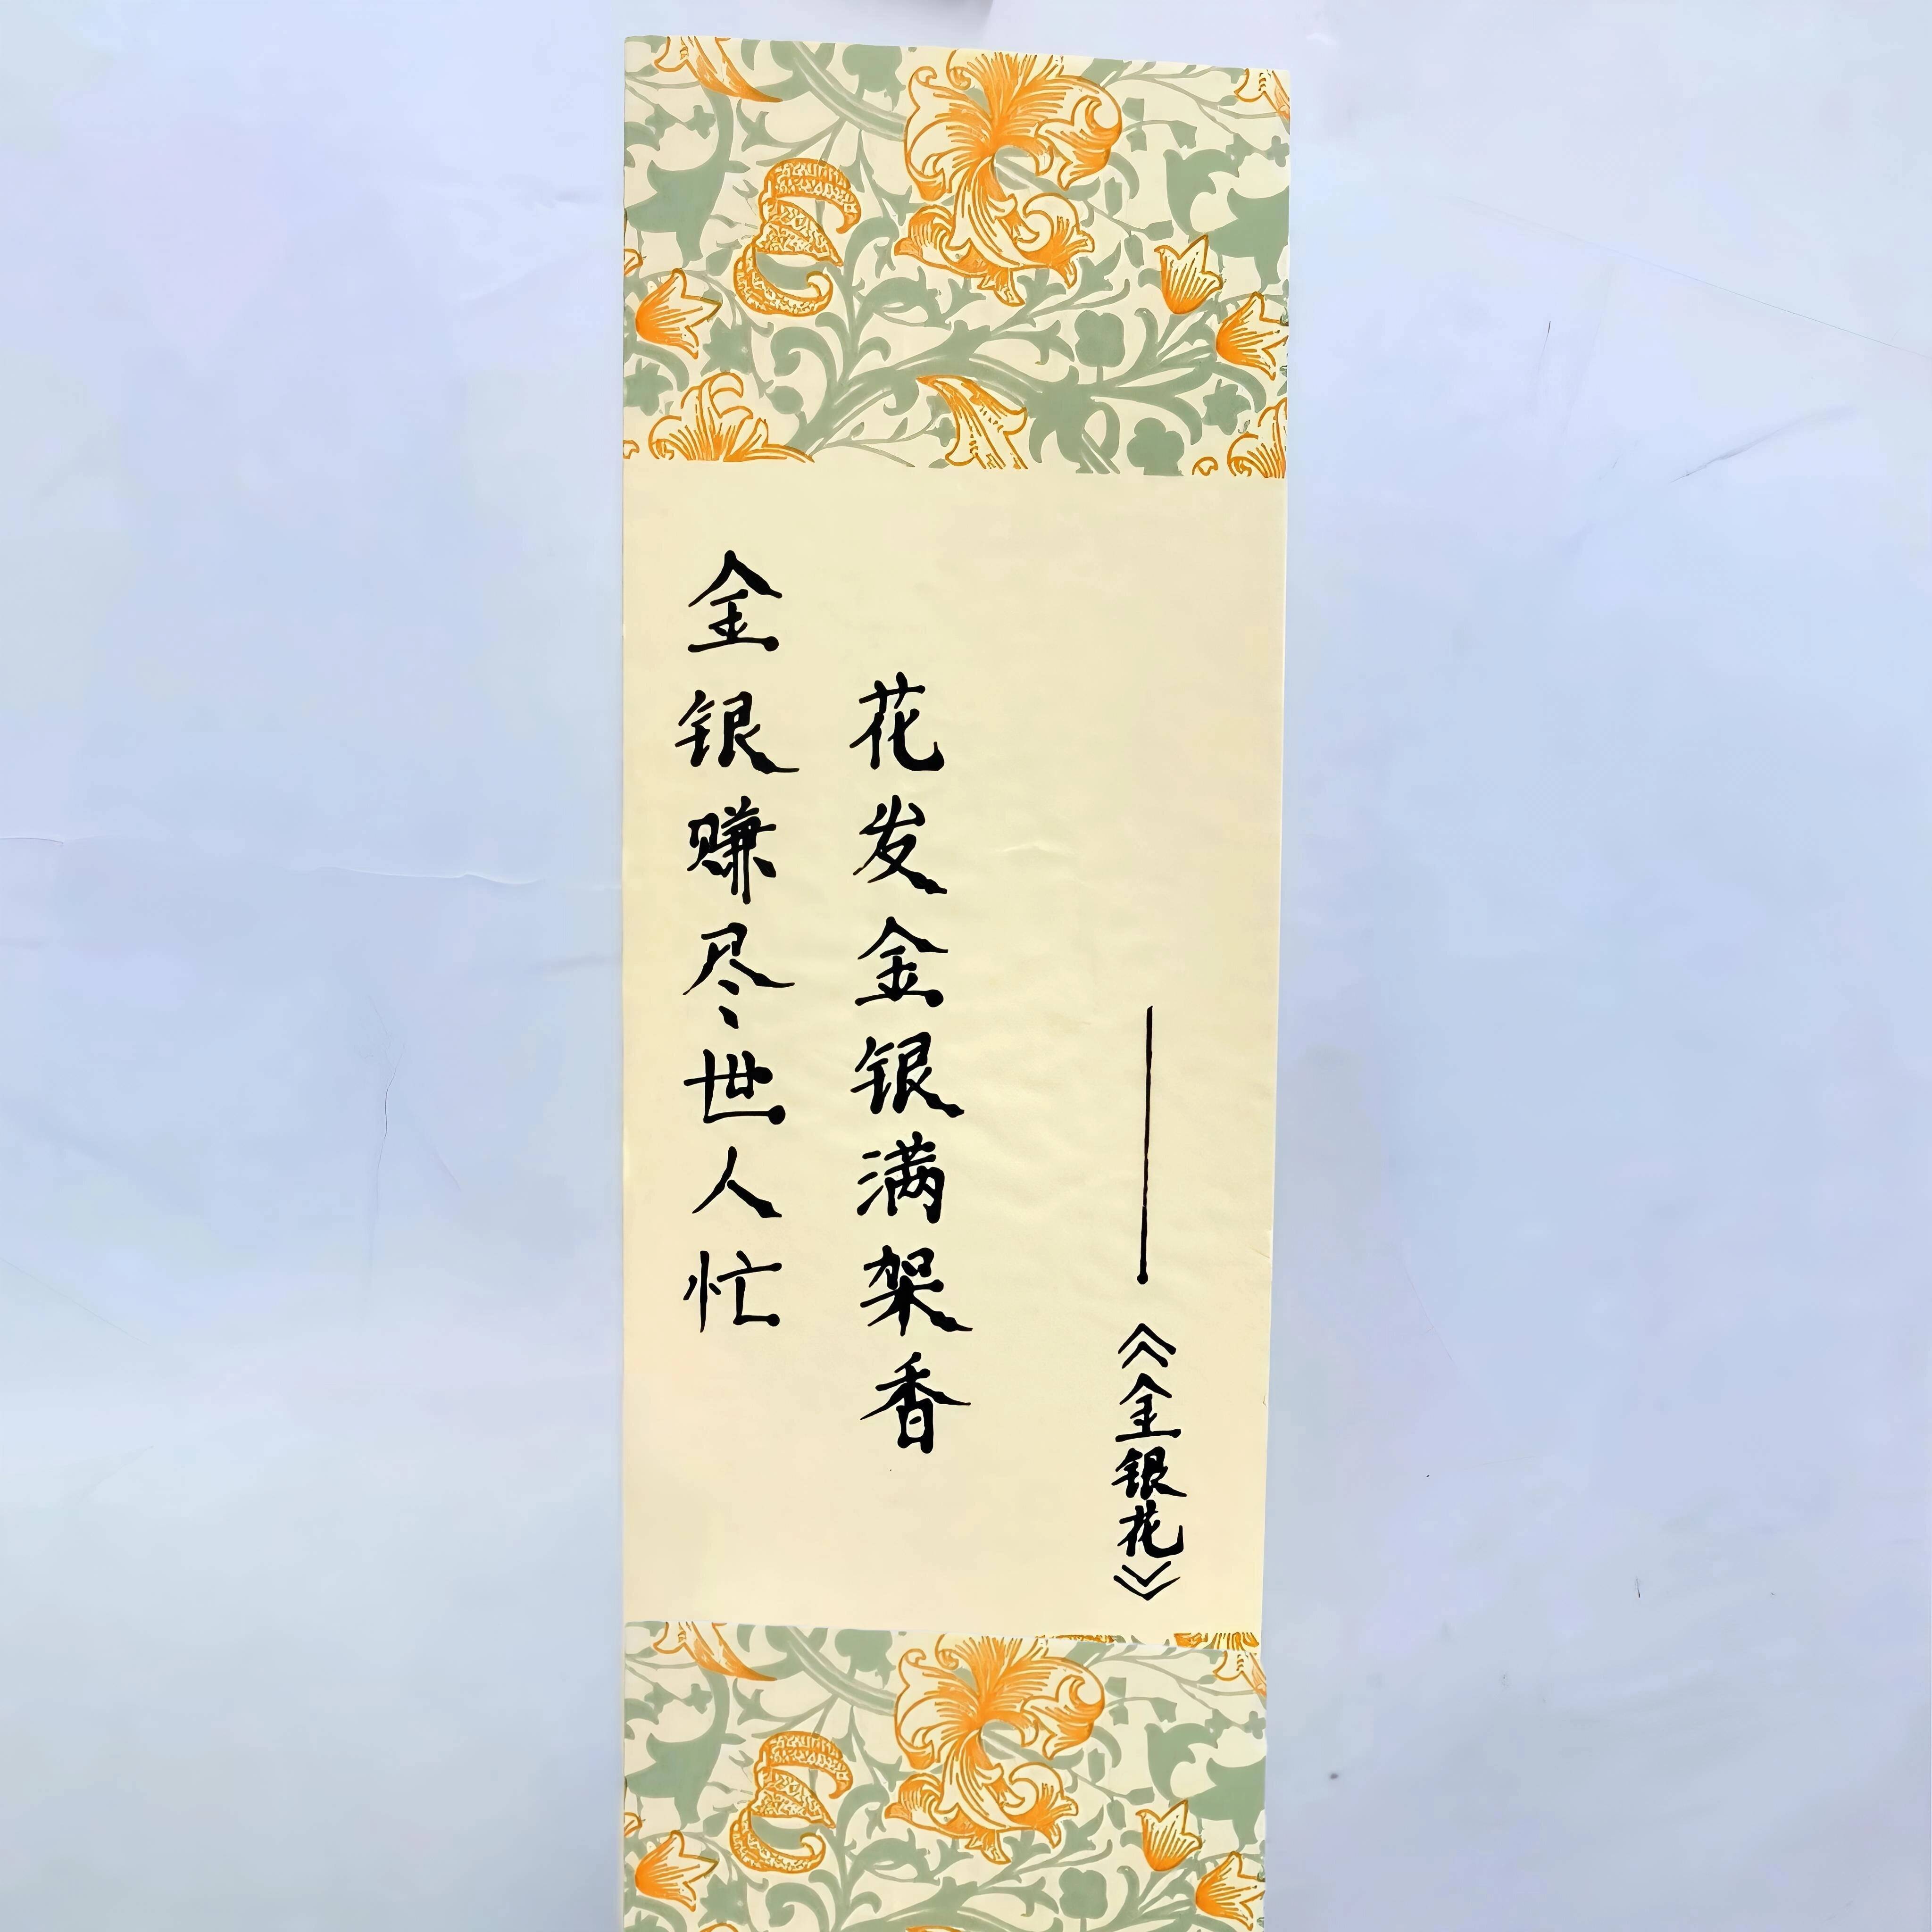 金银赚尽世人忙
花发金银满架香
——《金银花》